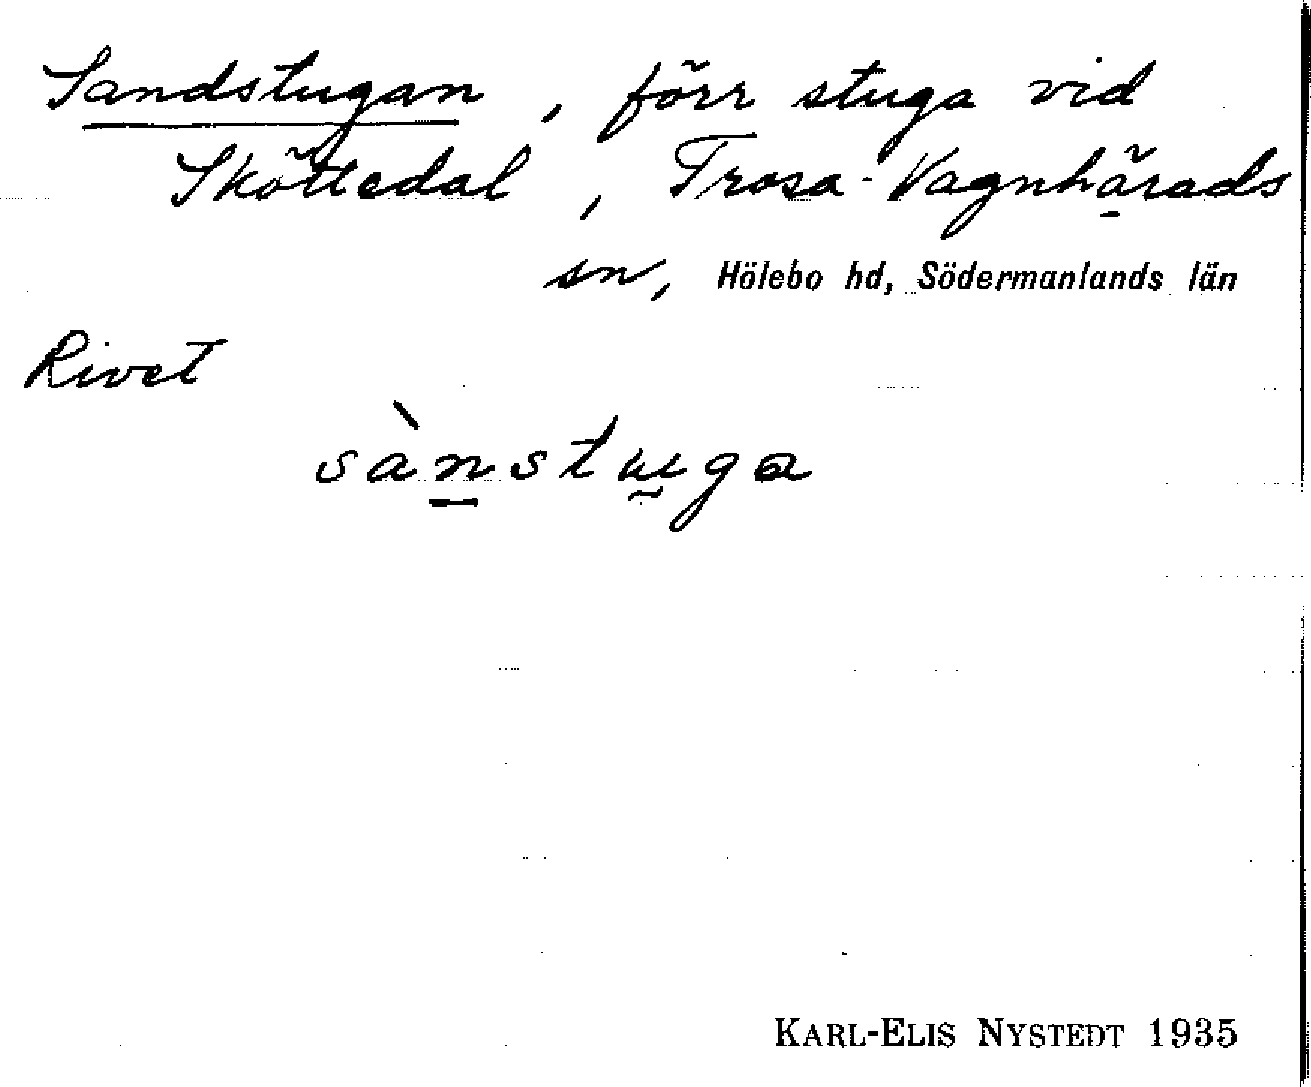 Sandstugan, förr stuga vid
Sköttedal, Trosa-Vagnhärads
sn, Hölebo hd, Södermanlands län
Rivet
sànstuga
KARL-ELIS NYSTEDT 1935